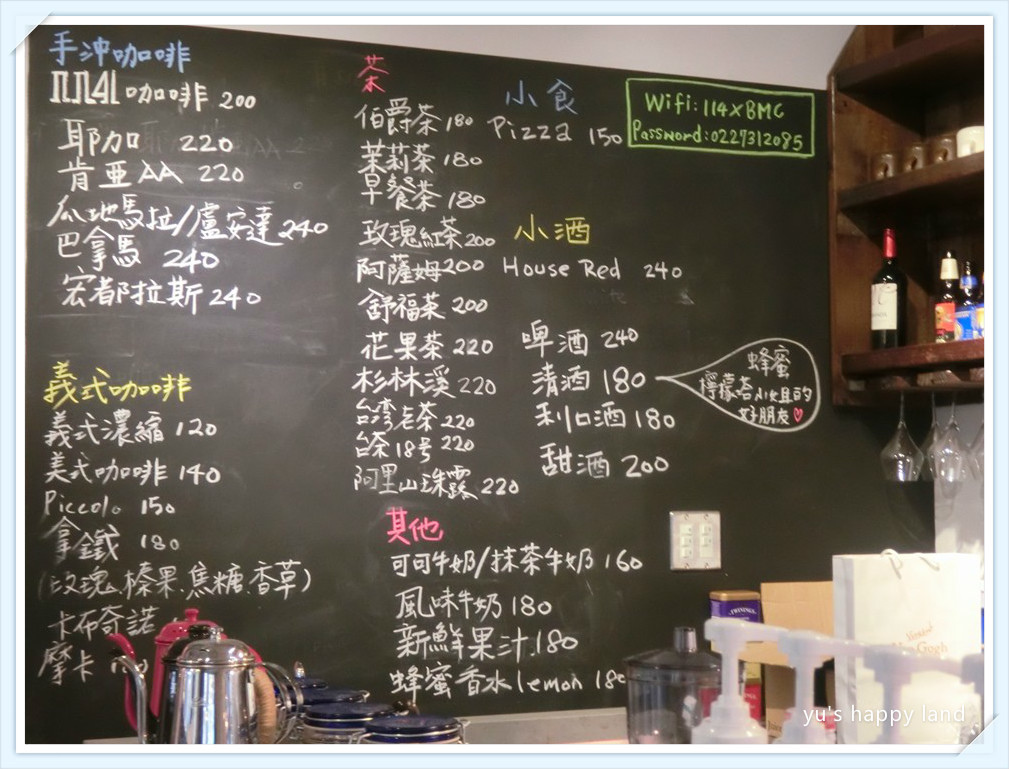 手沖咖啡
1114 咖啡 200
耶加 220
肯亞AA 220
瓜地馬拉/盧安達 240
巴拿馬 240
宏都拉斯 240
義式咖啡
義式濃縮 120
美式咖啡 140
Piccolo 150
拿鐵 180
(玫瑰.榛果.焦糖.香草)
卡布奇諾
摩卡
茶
伯爵茶 180
茉莉茶 180
早餐茶 180
玫瑰紅茶 200
阿薩姆 200
舒福茶 200
花果茶 220
杉林溪 220
台湾老茶 220
台茶18号 220
阿里山珠露 220
其他
可可牛奶/抹茶牛奶 160
風味牛奶 180
新鮮果汁 180
蜂蜜香水lemon 180
小食
Pizza 150
小酒
House Red 240
啤酒 240
清酒 180
利口酒 180
甜酒 200
蜂蜜
檸檬塔小姐的
好朋友
Wifi: 114XBMC
Password: 0227312085
TWININGS
yu's happy land